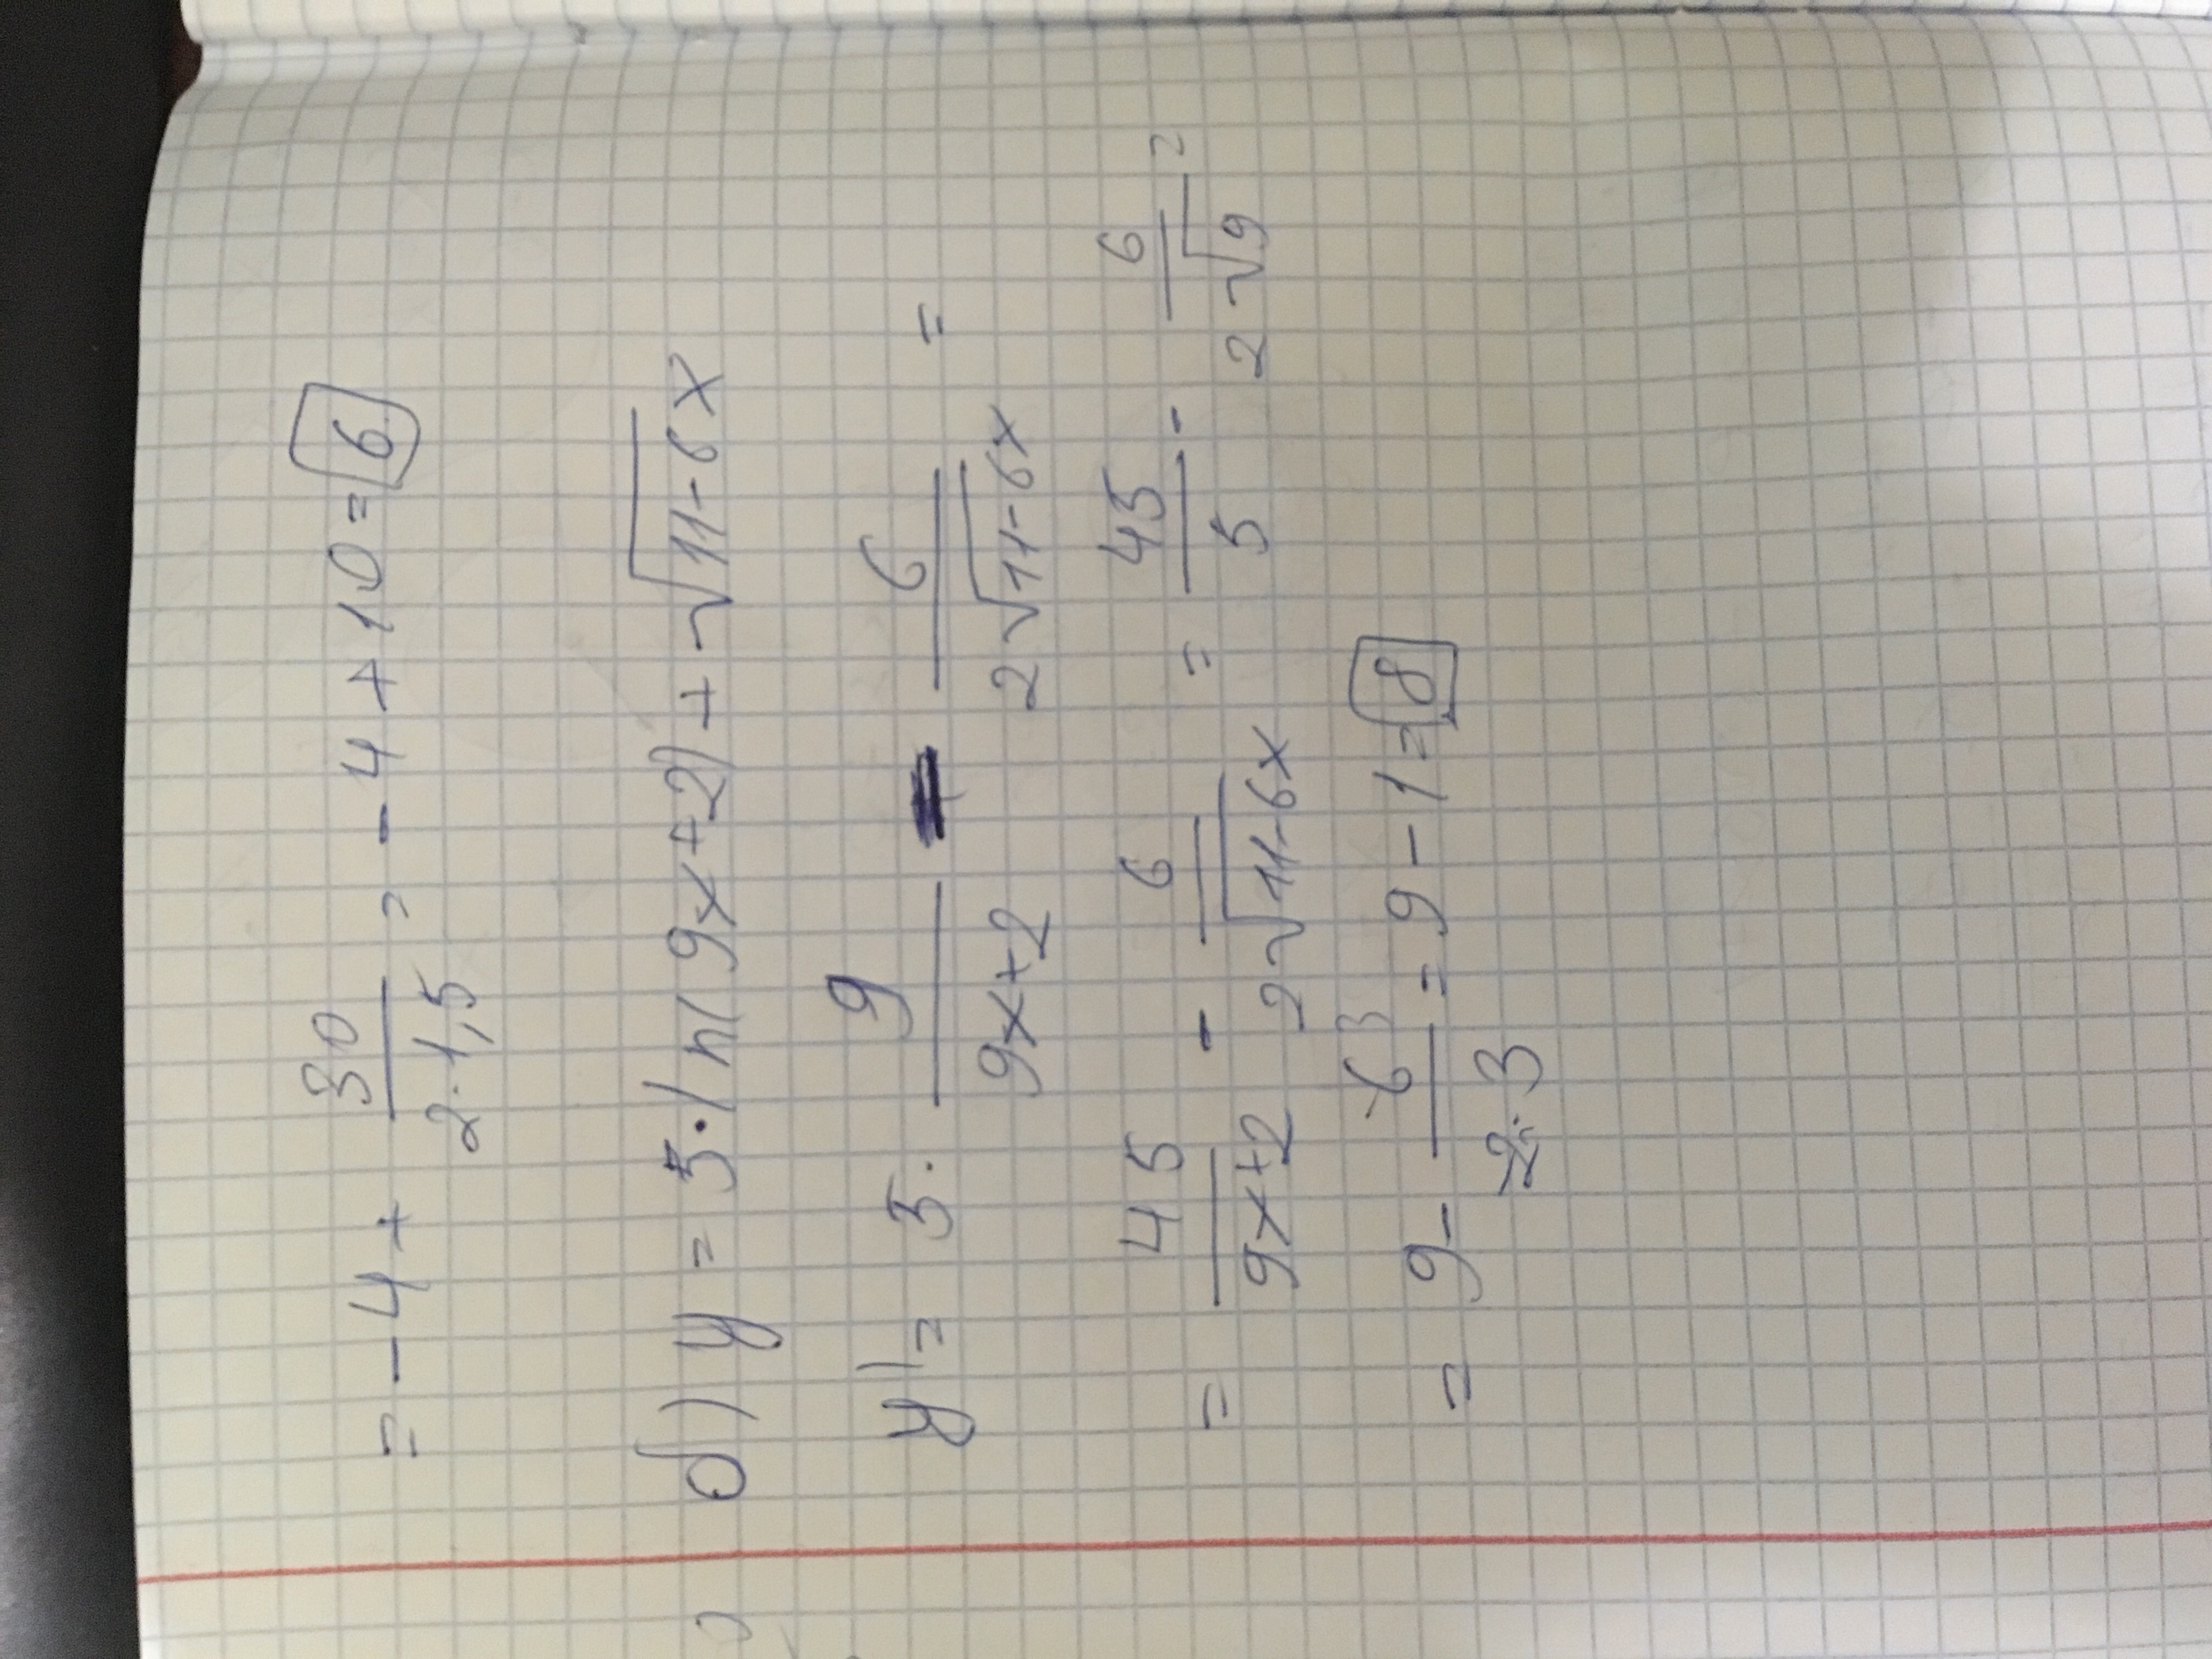 = - 4 + 30/(2·1,5) = - 4 + 10 = 6
б) y = 5·ln(9x+2) + √(11-6x)
y' = 5· 9/(9x+2) - 6/(2√(11-6x)) =
= 45/(9x+2) - 6/(2√(11-6x)) = 45/5 - 6/(2√9) =
= 9 - 6 3/(2·3) = 9 - 1 = 8